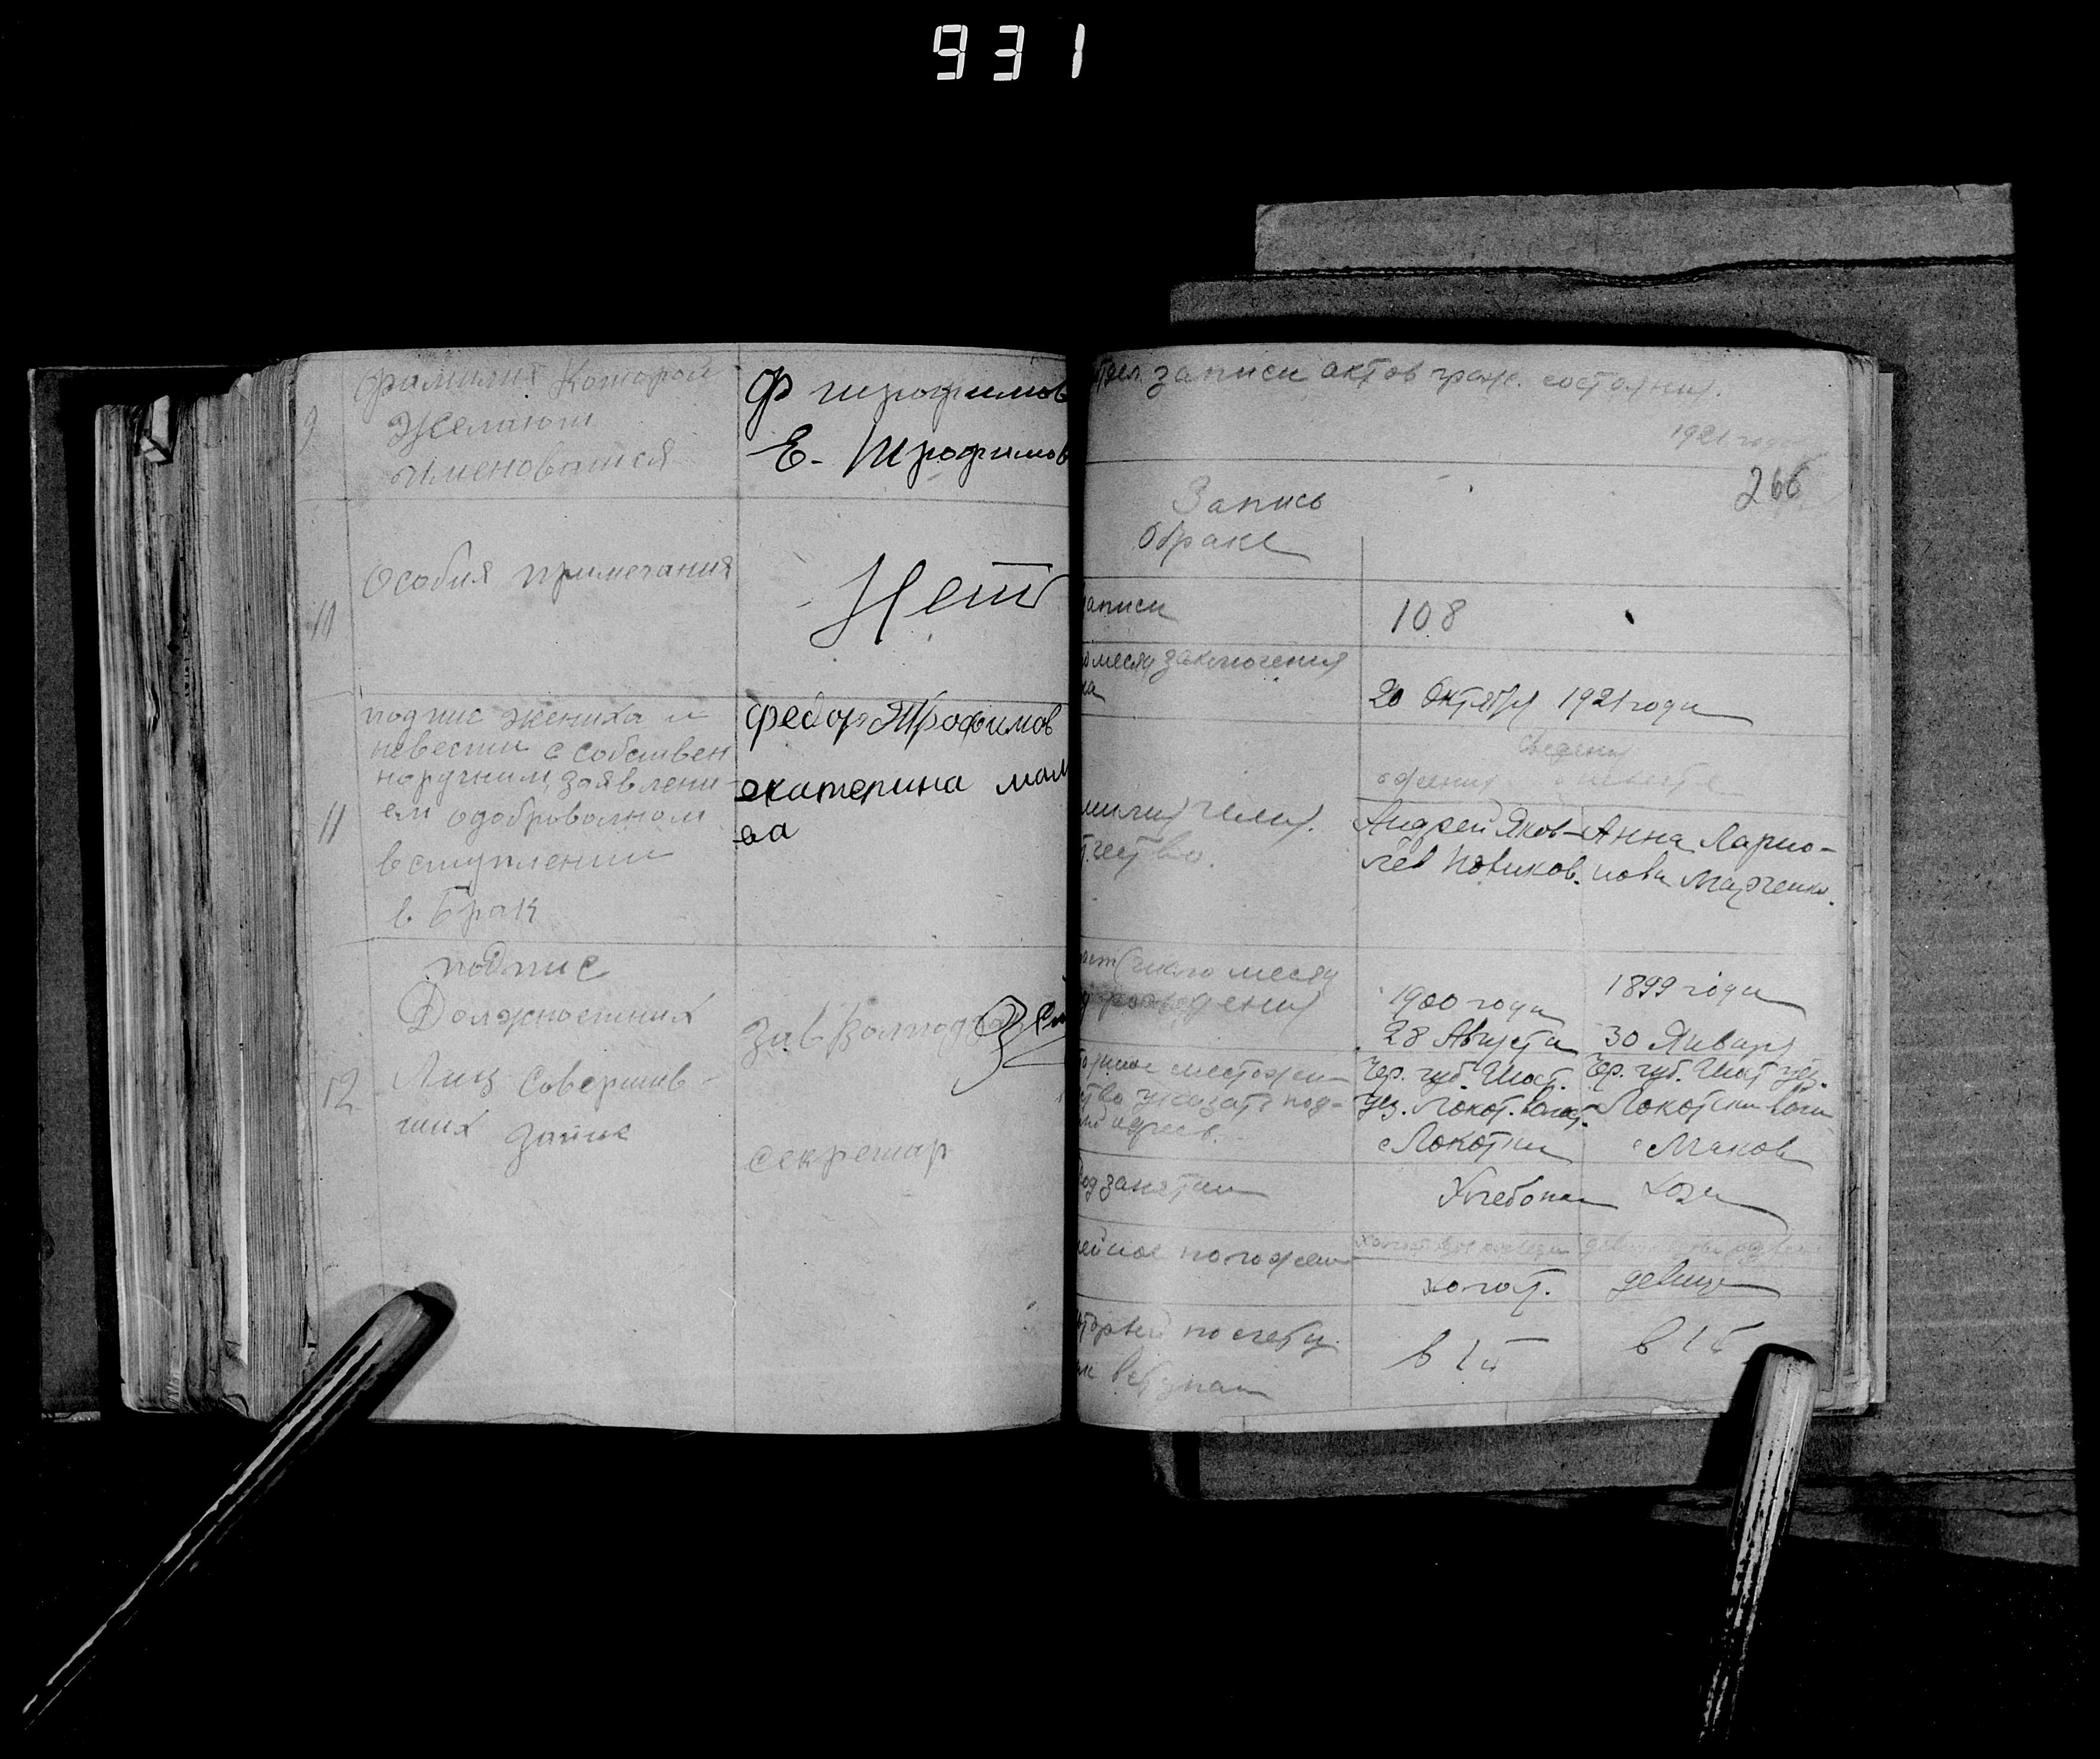 931
9
фамилия Которой
Желают
Именоватися
Ф трофимов
Е. Трофимов
10
Особия примечания
Нет
11
подпис жениха и
невести с собствен
норучним заявлени
ем одоброволном
вступлении
в Брак
Федор Трофимов
екатерина мам
ва
12
подпис
Должностних
Лиц Совершив-
ших запис
Зав
секретар
тдел записи актов граж. состояния.
1921 года
266
Запись
о браке
аписи
108
месяц заключения
ка
20 Октября 1921 года
Сведения
о жених о невесте
милия имя
тчество.
Андрей Яков-
лев Новиков.
Анна Ларио-
нова Марченко.
число месяц
рождения
1900 года
28 Августа
1899 года
30 Января
местожи-
ство указать под-
адрес.
Чер. губ. Шост.
уез. Локот. волос.
с Локотки
Чер. губ. Шост уез.
Локотки воло
с Маков
од занятии
Хлебопаш
хозя
ейное положени
холост.
девица
оторый по счету
вступаш
в 1й
в 1й